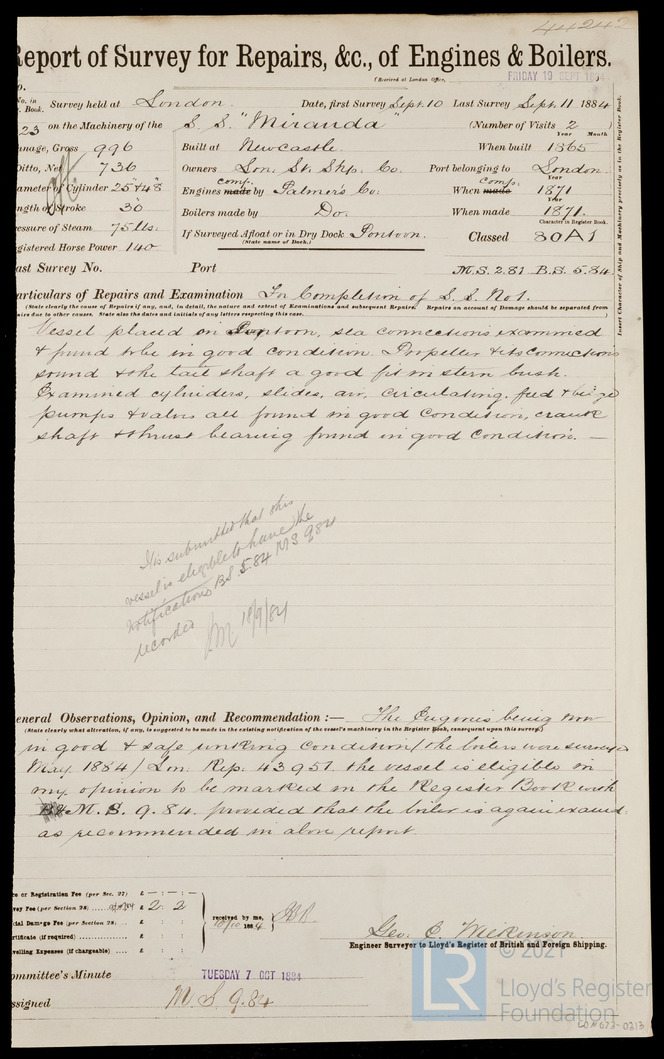 44242
Report of Survey for Repairs, &c., of Engines & Boilers.
(Received at London Office, FRIDAY 19 SEPT 1884)
No. in Survey held at London. Date, first Survey Sept. 10 Last Survey Sept. 11 1884
Book.
23 on the Machinery of the S. S. "Miranda" (Number of Visits 2)
Year Month
nnage, Gross 996 Built at Newcastle. When built 1865
Ditto, Net 736 Owners Lon. St. Shp. Co. Port belonging to London.
ameter of Cylinder 25 & 48 Engines made comp. by Palmer's Co: When made comp. 1871
Year
ngth of Stroke 36 Boilers made by Do. When made 1871.
essure of Steam 75 lbs. If Surveyed Afloat or in Dry Dock Pontoon. Classed 80A1
Character in Register Book.
(State name of Dock.)
gistered Horse Power 140
ast Survey No. Port M.S. 2.81 B.S. 5.84.
articulars of Repairs and Examination For Completion of S. S. No 1.
(State clearly the cause of Repairs if any, and, in detail, the nature and extent of Examinations and subsequent Repairs. Repairs on account of Damage should be separated from
airs due to other causes. State also the dates and initials of any letters respecting this case.)
Vessel placed on Pontoon, sea connections examined
& found to be in good condition. Propeller & its connections
sound & the tail shaft a good fit in stern bush.
Examined cylinders, slides, air, circulating, feed & bilge
pumps & valves all found in good condition, crank
shaft & thrust bearing found in good condition. —
It is submitted that this
vessel is eligible to have the
notifications BS 5.84 MS 9.84
recorded
18/9/84
eneral Observations, Opinion, and Recommendation :— The Engines being now
(State clearly what alteration, if any, is suggested to be made in the existing notification of the vessel's machinery in the Register Book, consequent upon this survey.)
in good & safe working condition (the boilers were surveyed
May 1884) Lon. Rep. 43951 the vessel is eligible in
my opinion to be marked in the Register Book with
M. S. 9.84. provided that the boiler is again examd.
as recommended in above report.
ce or Registration Fee (per Sec. 27) £ - : - : -
vey Fee (per Section 28) £ 2 : 2
cial Damage Fee (per Section 28) £ : :
rtificate (if required) £ : :
velling Expenses (if chargeable) £ : :
received by me,
1884
Geo: C. Wilkinson.
Engineer Surveyor to Lloyd's Register of British and Foreign Shipping.
ommittee's Minute TUESDAY 7 OCT 1884
ssigned M. S. 9.84
Insert Character of Ship and Machinery precisely as in the Register Book.
© 2021
LR
Lloyd's Register
Foundation
LON673-0313